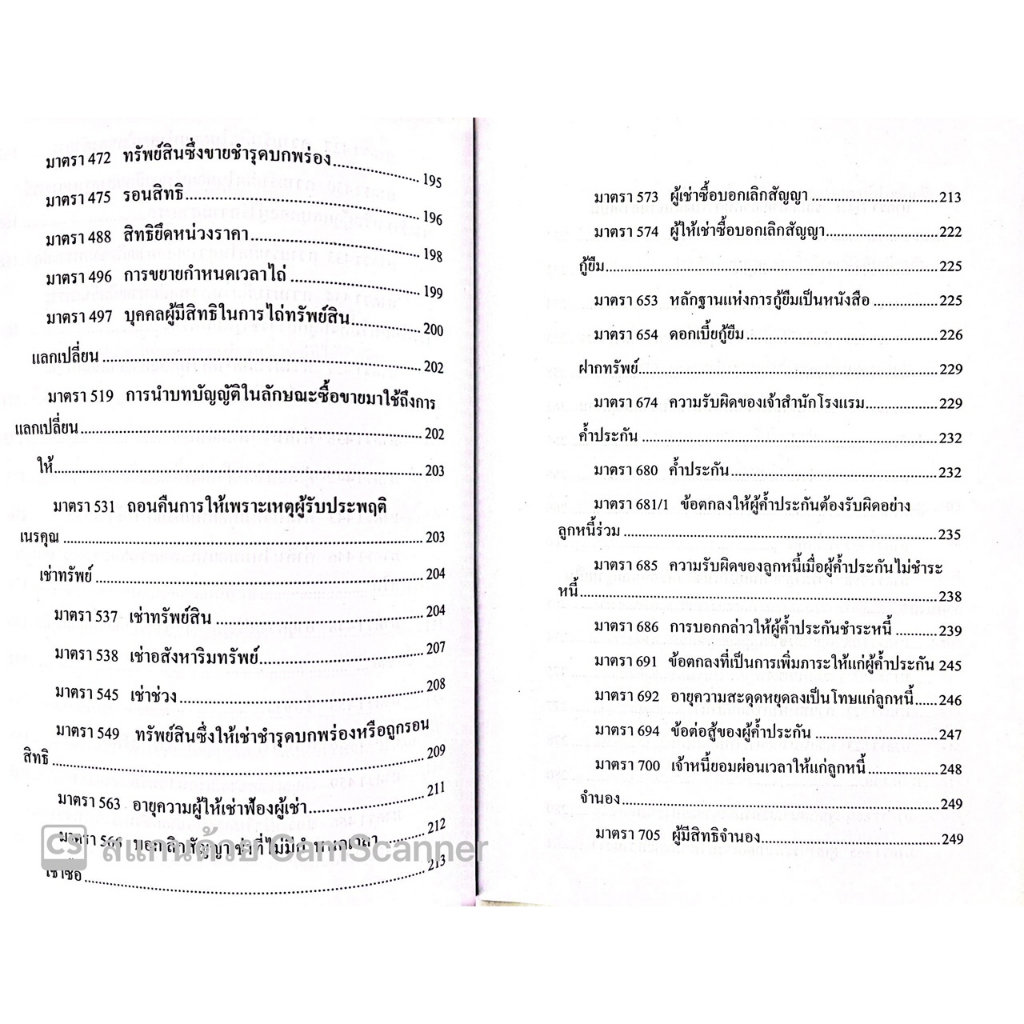 มาตรา 472 ทรัพย์สินซึ่งขายชำรุดบกพร่อง 195
มาตรา 475 รอนสิทธิ 196
มาตรา 488 สิทธิยึดหน่วงราคา 198
มาตรา 496 การขยายกำหนดเวลาไถ่ 199
มาตรา 497 บุคคลผู้มีสิทธิในการไถ่ทรัพย์สิน 200
แลกเปลี่ยน 202
มาตรา 519 การนำบทบัญญัติในลักษณะซื้อขายมาใช้ถึงการ
แลกเปลี่ยน 202
ให้ 203
มาตรา 531 ถอนคืนการให้เพราะเหตุผู้รับประพฤติ
เนรคุณ 203
เช่าทรัพย์ 204
มาตรา 537 เช่าทรัพย์สิน 204
มาตรา 538 เช่าอสังหาริมทรัพย์ 207
มาตรา 545 เช่าช่วง 208
มาตรา 549 ทรัพย์สินซึ่งให้เช่าชำรุดบกพร่องหรือถูกรอน
สิทธิ 209
มาตรา 563 อายุความผู้ให้เช่าฟ้องผู้เช่า 211
มาตรา 566 บอกเลิกสัญญาเช่าที่ไม่มีกำหนดเวลา 212
เช่าซื้อ 213
CS สแกนด้วย CamScanner
มาตรา 573 ผู้เช่าซื้อบอกเลิกสัญญา 213
มาตรา 574 ผู้ให้เช่าซื้อบอกเลิกสัญญา 222
กู้ยืม 225
มาตรา 653 หลักฐานแห่งการกู้ยืมเป็นหนังสือ 225
มาตรา 654 ดอกเบี้ยกู้ยืม 226
ฝากทรัพย์ 229
มาตรา 674 ความรับผิดของเจ้าสำนักโรงแรม 229
ค้ำประกัน 232
มาตรา 680 ค้ำประกัน 232
มาตรา 681/1 ข้อตกลงให้ผู้ค้ำประกันต้องรับผิดอย่าง
ลูกหนี้ร่วม 235
มาตรา 685 ความรับผิดของลูกหนี้เมื่อผู้ค้ำประกันไม่ชำระ
หนี้ 238
มาตรา 686 การบอกกล่าวให้ผู้ค้ำประกันชำระหนี้ 239
มาตรา 691 ข้อตกลงที่เป็นการเพิ่มภาระให้แก่ผู้ค้ำประกัน 245
มาตรา 692 อายุความสะดุดหยุดลงเป็นโทษแก่ลูกหนี้ 246
มาตรา 694 ข้อต่อสู้ของผู้ค้ำประกัน 247
มาตรา 700 เจ้าหนี้ยอมผ่อนเวลาให้แก่ลูกหนี้ 248
จำนอง 249
มาตรา 705 ผู้มีสิทธิจำนอง 249